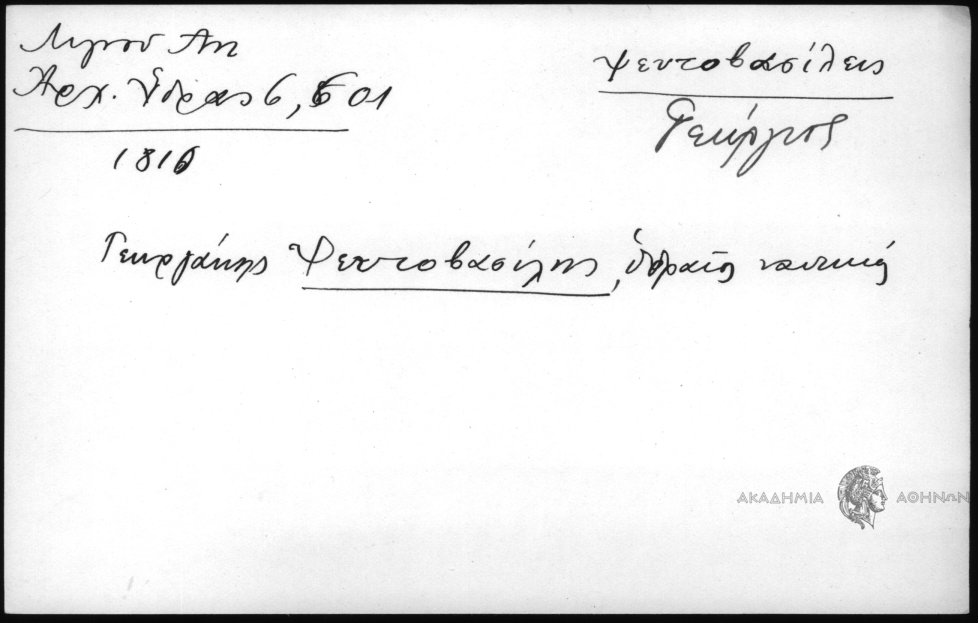 Λιγνού Αντ
Αρχ. Ύδρας 6, 601
1816
Ψευτοβασίλεις
Γεώργιος
Γεωργάκης Ψευτοβασίλης, ὑδραῖος ναυτικός
ΑΚΑΔΗΜΙΑ ΑΘΗΝΩΝ